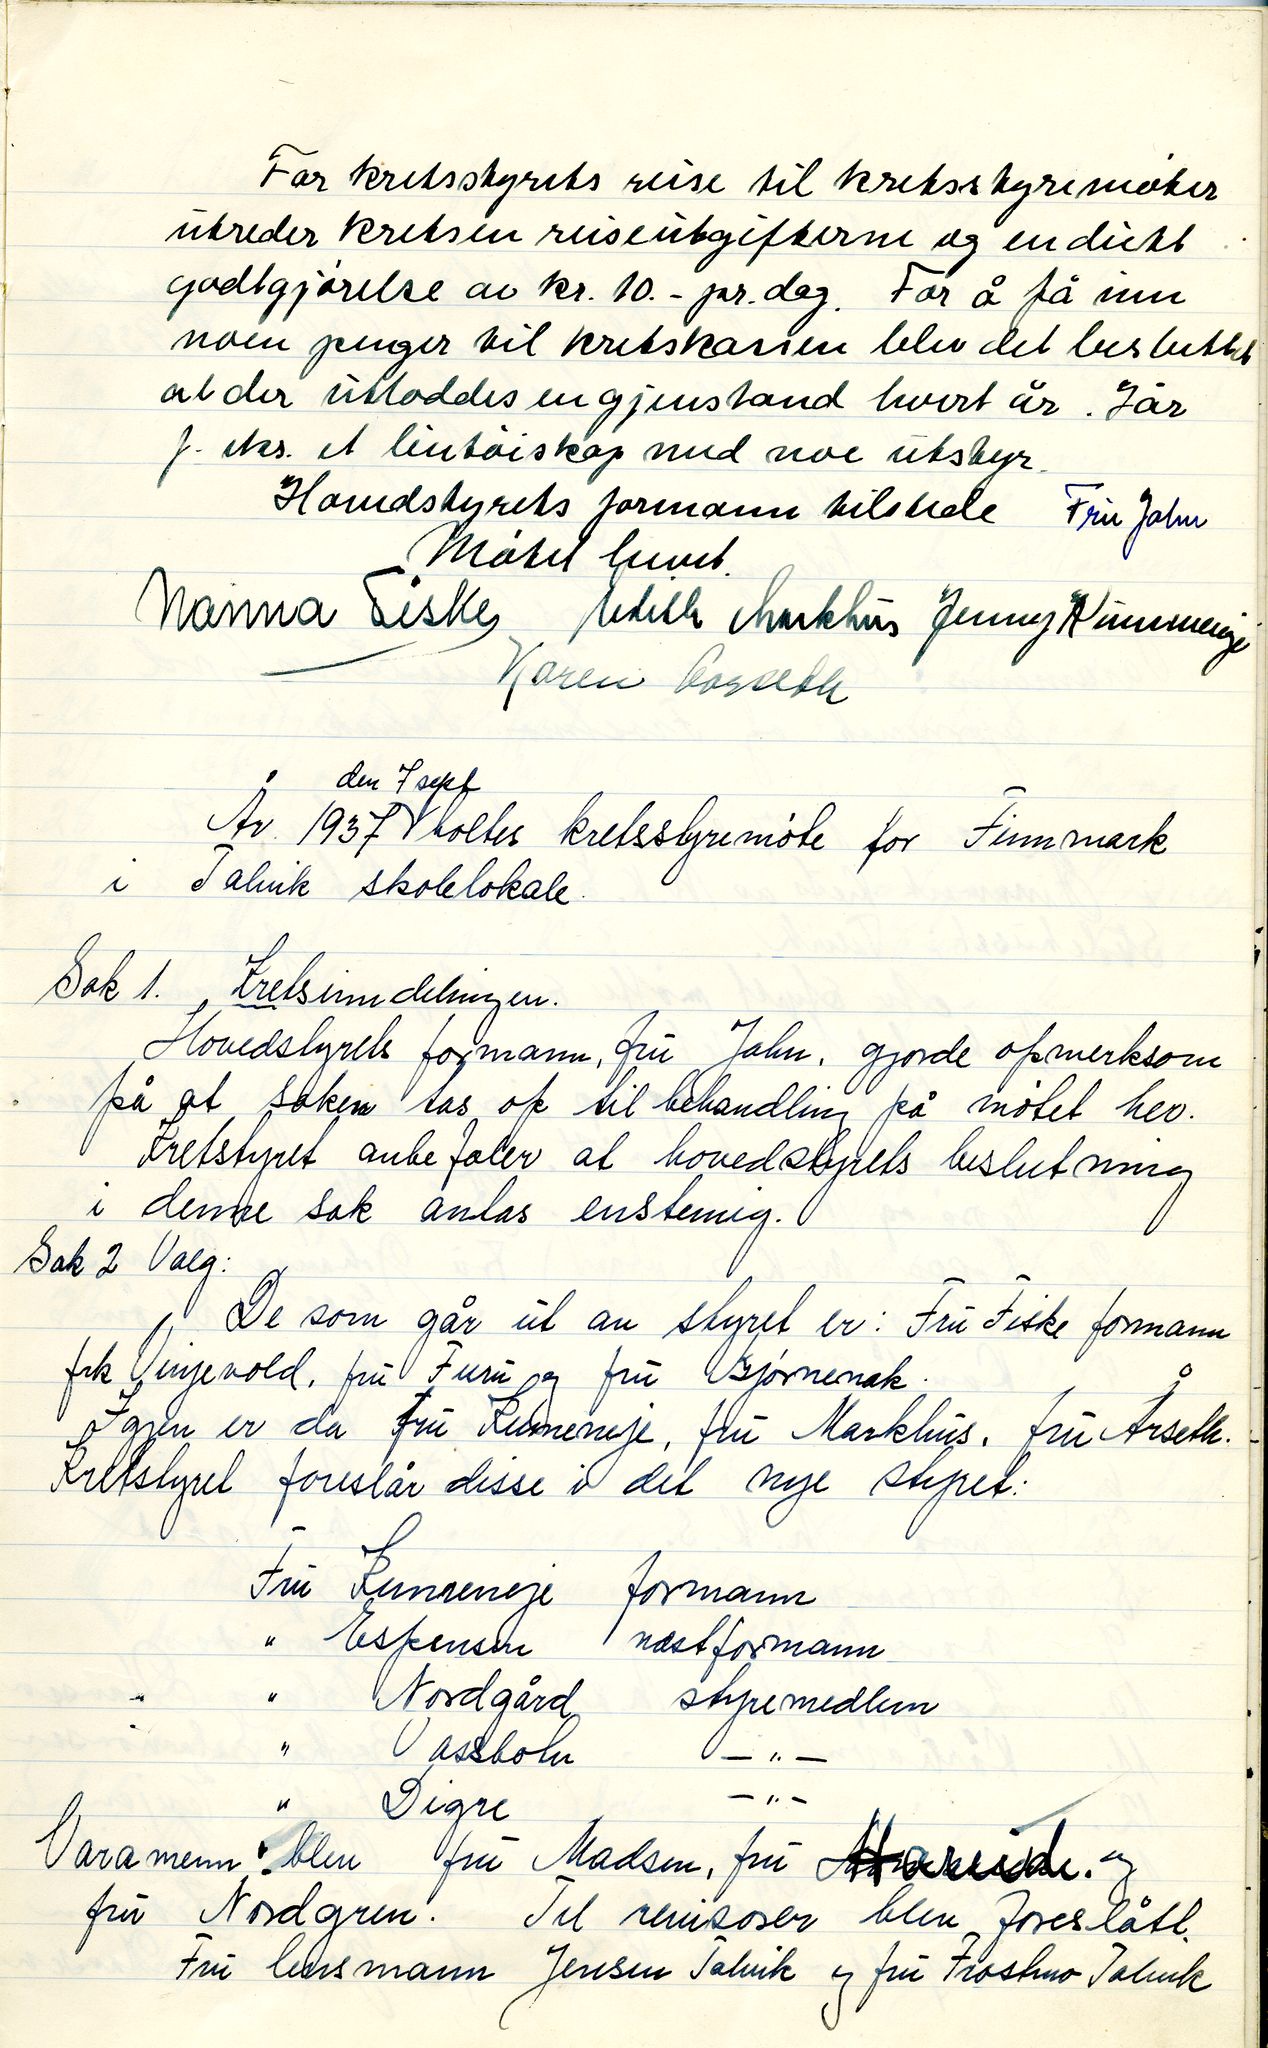 For kretsstyrets reise til kretsstyremøter
utreder kretsen reiseutgifterne og en diett
godtgjørelse av kr. 10.- pr. dag. For å få inn
noen penger til kretskassen blev det besluttet
at der utloddes en gjenstand hvert år. I år
f. eks. et lintøiskap med noe utstyr.
Hovedstyrets formann tilstede Fru Jahn
Møtet hevet.
Nanna Fiske Edith Markhus Jenny Kummeneje
Karen Aarseth
den 7 sept
År 1937 V holtes kretsstyremøte for Finnmark
i Talvik skolelokale.
Sak 1. Kretsinndelingen.
Hovedstyrets formann, fru Jahn, gjorde opmerksom
på at saken tas op til behandling på møtet her.
Kretstyret anbefaler at hovedstyrets beslutning
i denne sak antas enstemig.
Sak 2 Valg:
De som går ut av styret er: Fru Fiske formann
frk Vinjevold, fru Furu og fru Bjørnenak.
Igjen er da fru Kumeneje, fru Markhus, fru Årseth.
Kretstyret foreslår disse i det nye styret:
Fru Kummeneje formann
" Espensen næstformann
" Nordgård styremedlem
" Vassbotn -"-
" Digre -"-
Varamenn blev fru Madsen, fru Hareide. og
fru Nordgren. Til revisorer blev foreslått.
Fru lensmann Jensen Talvik og fru Frostmo Talvik